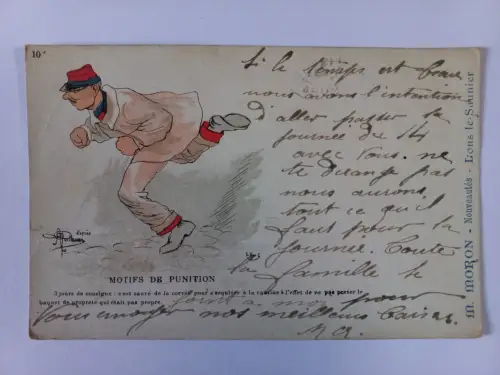 10e
Si le temps est beau
nous avons l'intention
d'aller passer la
journée du 14
avec vous. ne
te dérange pas
nous aurons
tout ce qu'il
faut pour la
journée. Toute
la famille se
joint a moi pour
vous envoyer nos meilleurs baisers
d'après
MOTIFS DE PUNITION
3 jours de consigne : s'est sauvé de la corvée pour s'esquiver à la cantine à l'effet de ne pas porter le
baquet de propreté qui était pas propre.
M. MORON - Nouveautés - Lons-le-Saunier